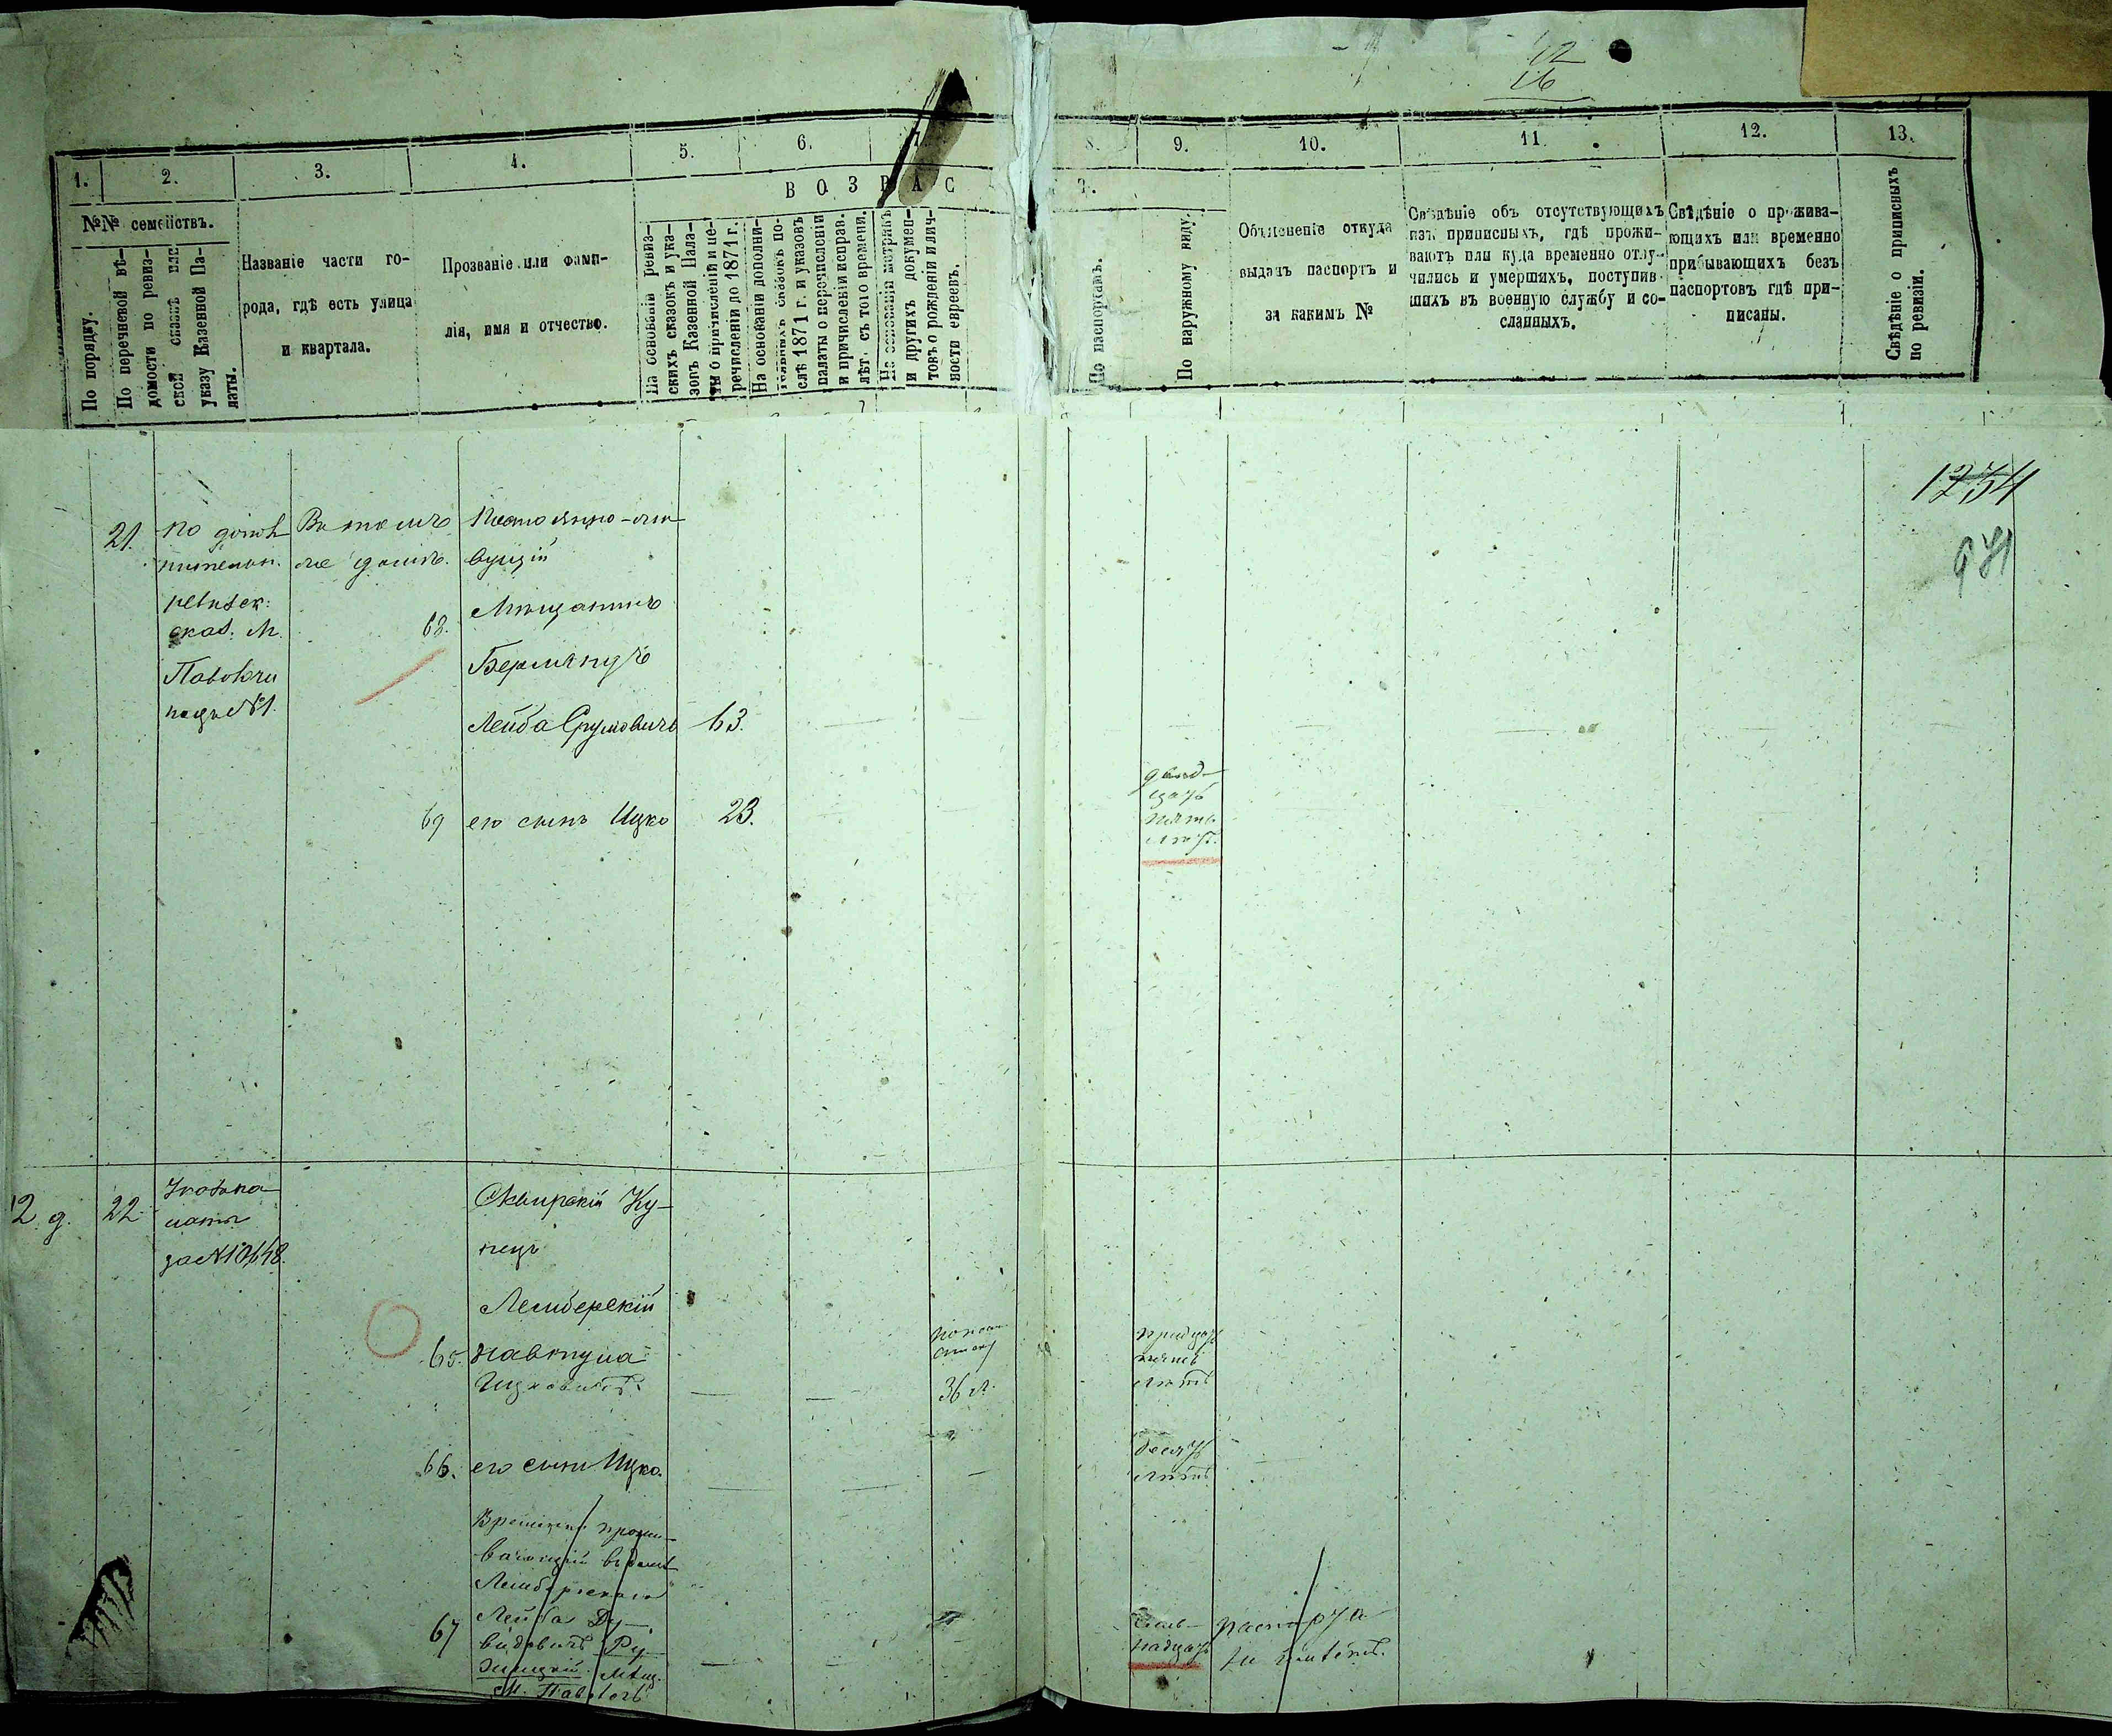 12
16
1.
2.
3.
4.
5.
6.
7.
8.
9.
10.
11.
12.
13.
ВОЗРАС
Т.
№№ семействъ.
По порядку.
По перечневой вѣ-
домости по ревиз-
ской сказкѣ или
указу Казенной Па-
латы.
Названіе части го-
рода, гдѣ есть улица
и квартала.
Прозваніе или фами-
лія, имя и отчество.
На основаніи ревиз-
скихъ сказокъ и ука-
зовъ Казенной Пала-
ты о причисленіи и пе-
речисленіи до 1871 г.
На основаніи дополни-
тельныхъ сказокъ по-
слѣ 1871 г. и указовъ
палаты о перечисленіи
и причисленіи исправ.
лѣт. съ того времени.
На основаніи метрикъ
и другихъ докумен-
товъ о рожденіи и лич-
ности евреевъ.
По паспортамъ.
По наружному виду.
Объясненіе откуда
выданъ паспортъ и
за какимъ №
Свѣдѣніе объ отсутствующихъ
изъ приписныхъ, гдѣ прожи-
ваютъ или куда временно отлу-
чились и умершихъ, поступив-
шихъ въ военную службу и со-
сланныхъ.
Свѣдѣніе о прожива-
ющихъ или временно
прибывающихъ безъ
паспортовъ гдѣ при-
писаны.
Свѣдѣніе о приписныхъ
по ревизіи.
1254
971
21.
по допол
нительн.
ревизск:
сказ. М.
Паволочи
подъ №1.
Въ томъ
же домѣ.
Постоянно-жи
вущій
68. Мѣщанинъ
Берманъ
Лейба Срумовичъ 63.
69 его сынъ Ицко 23.
двад-
цать
пять
лѣтъ.
2 д. 22
Указ па
латы
за №10648.
Сквирскій Ку-
пецъ
Лемберскій
65.
Ицковичъ.
36 л.
тридцать
пять
лѣтъ
66. его сынъ Ицко.
десять
лѣтъ
Временно прожи-
вающій въ домѣ
Лемберскаго
67 Лейба Ду-
видовичъ Ру-
жицкій Мѣщ.
М. Паволочь
семь-
надцать
паспорта
не имѣетъ.